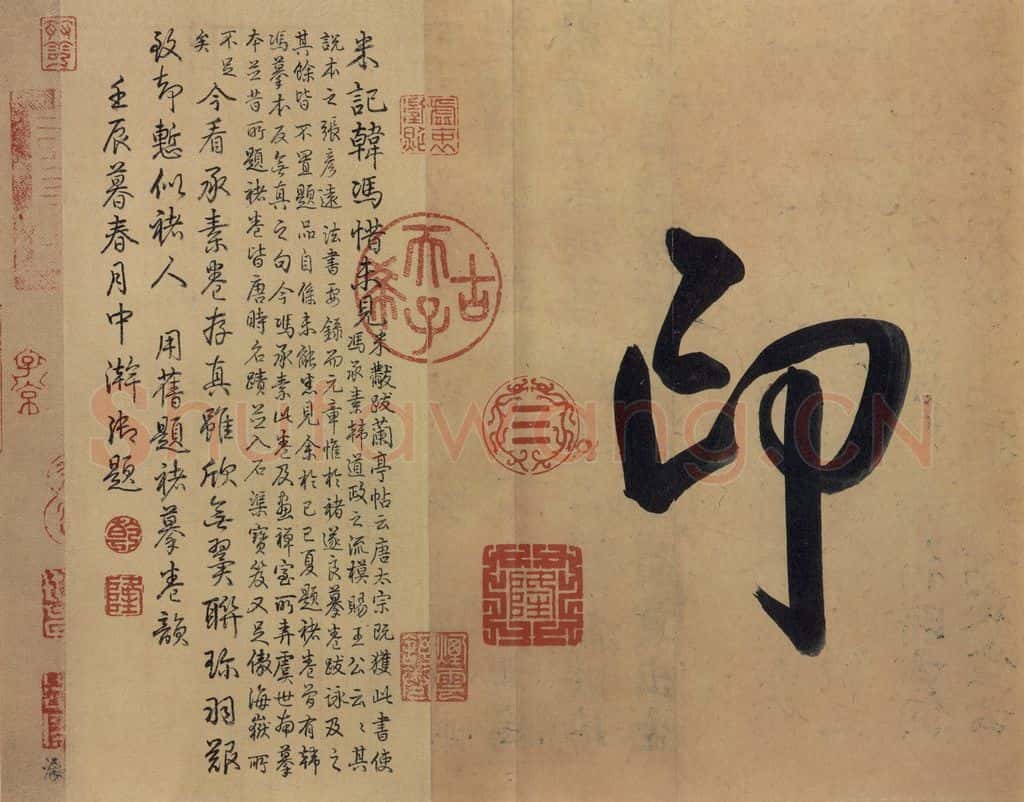 印
米記韓馮惜未見
米黻跋蘭亭帖云唐太宗既獲此書使
馮承素韓道政之流模賜王公云云其
說本之張彥遠法書要錄而元章惟於褚遂良摹卷跋詠及之
其餘皆不置題品自係未能悉見余於己巳夏題褚卷曾有韓
馮摹本反無真之句今馮承素此卷及畫禪室所弆虞世南摹
本並昔所題褚卷皆唐時名蹟並入石渠寶笈又足傲海嶽所
不足
矣
今看承素卷存真雖欣無翼聯珎羽艱
致却慙似褚人 用舊題褚摹卷韻
壬辰暮春月中澣御題
乾
隆
古希天子
乾隆
子京
Shufawang.CN